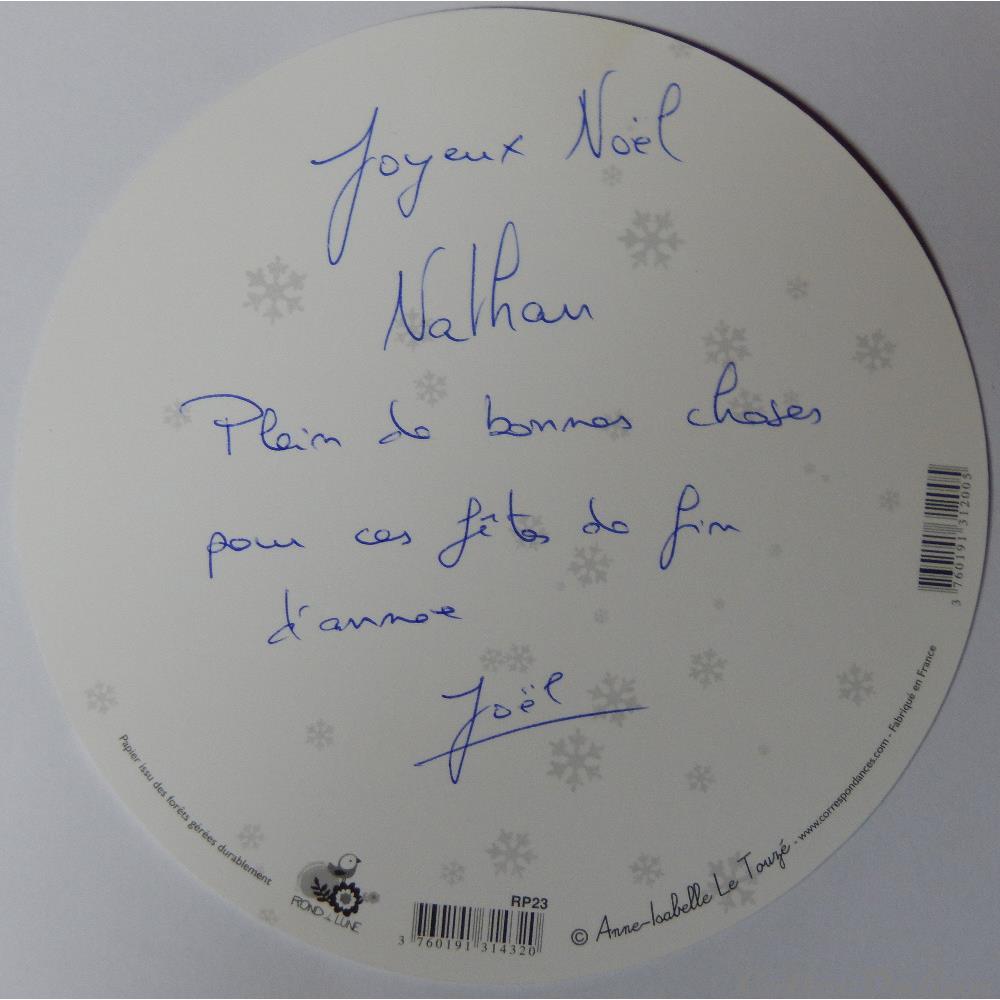 Joyeux Noël
Nathan
Plein de bonnes choses
pour ces fêtes de fin
d'année
Joël
3 760191 312005
Papier issu des forêts gérées durablement
ROND de LUNE
RP23
3 760191 314320
© Anne-Isabelle Le Touzé - www.correspondances.com - Fabriqué en France